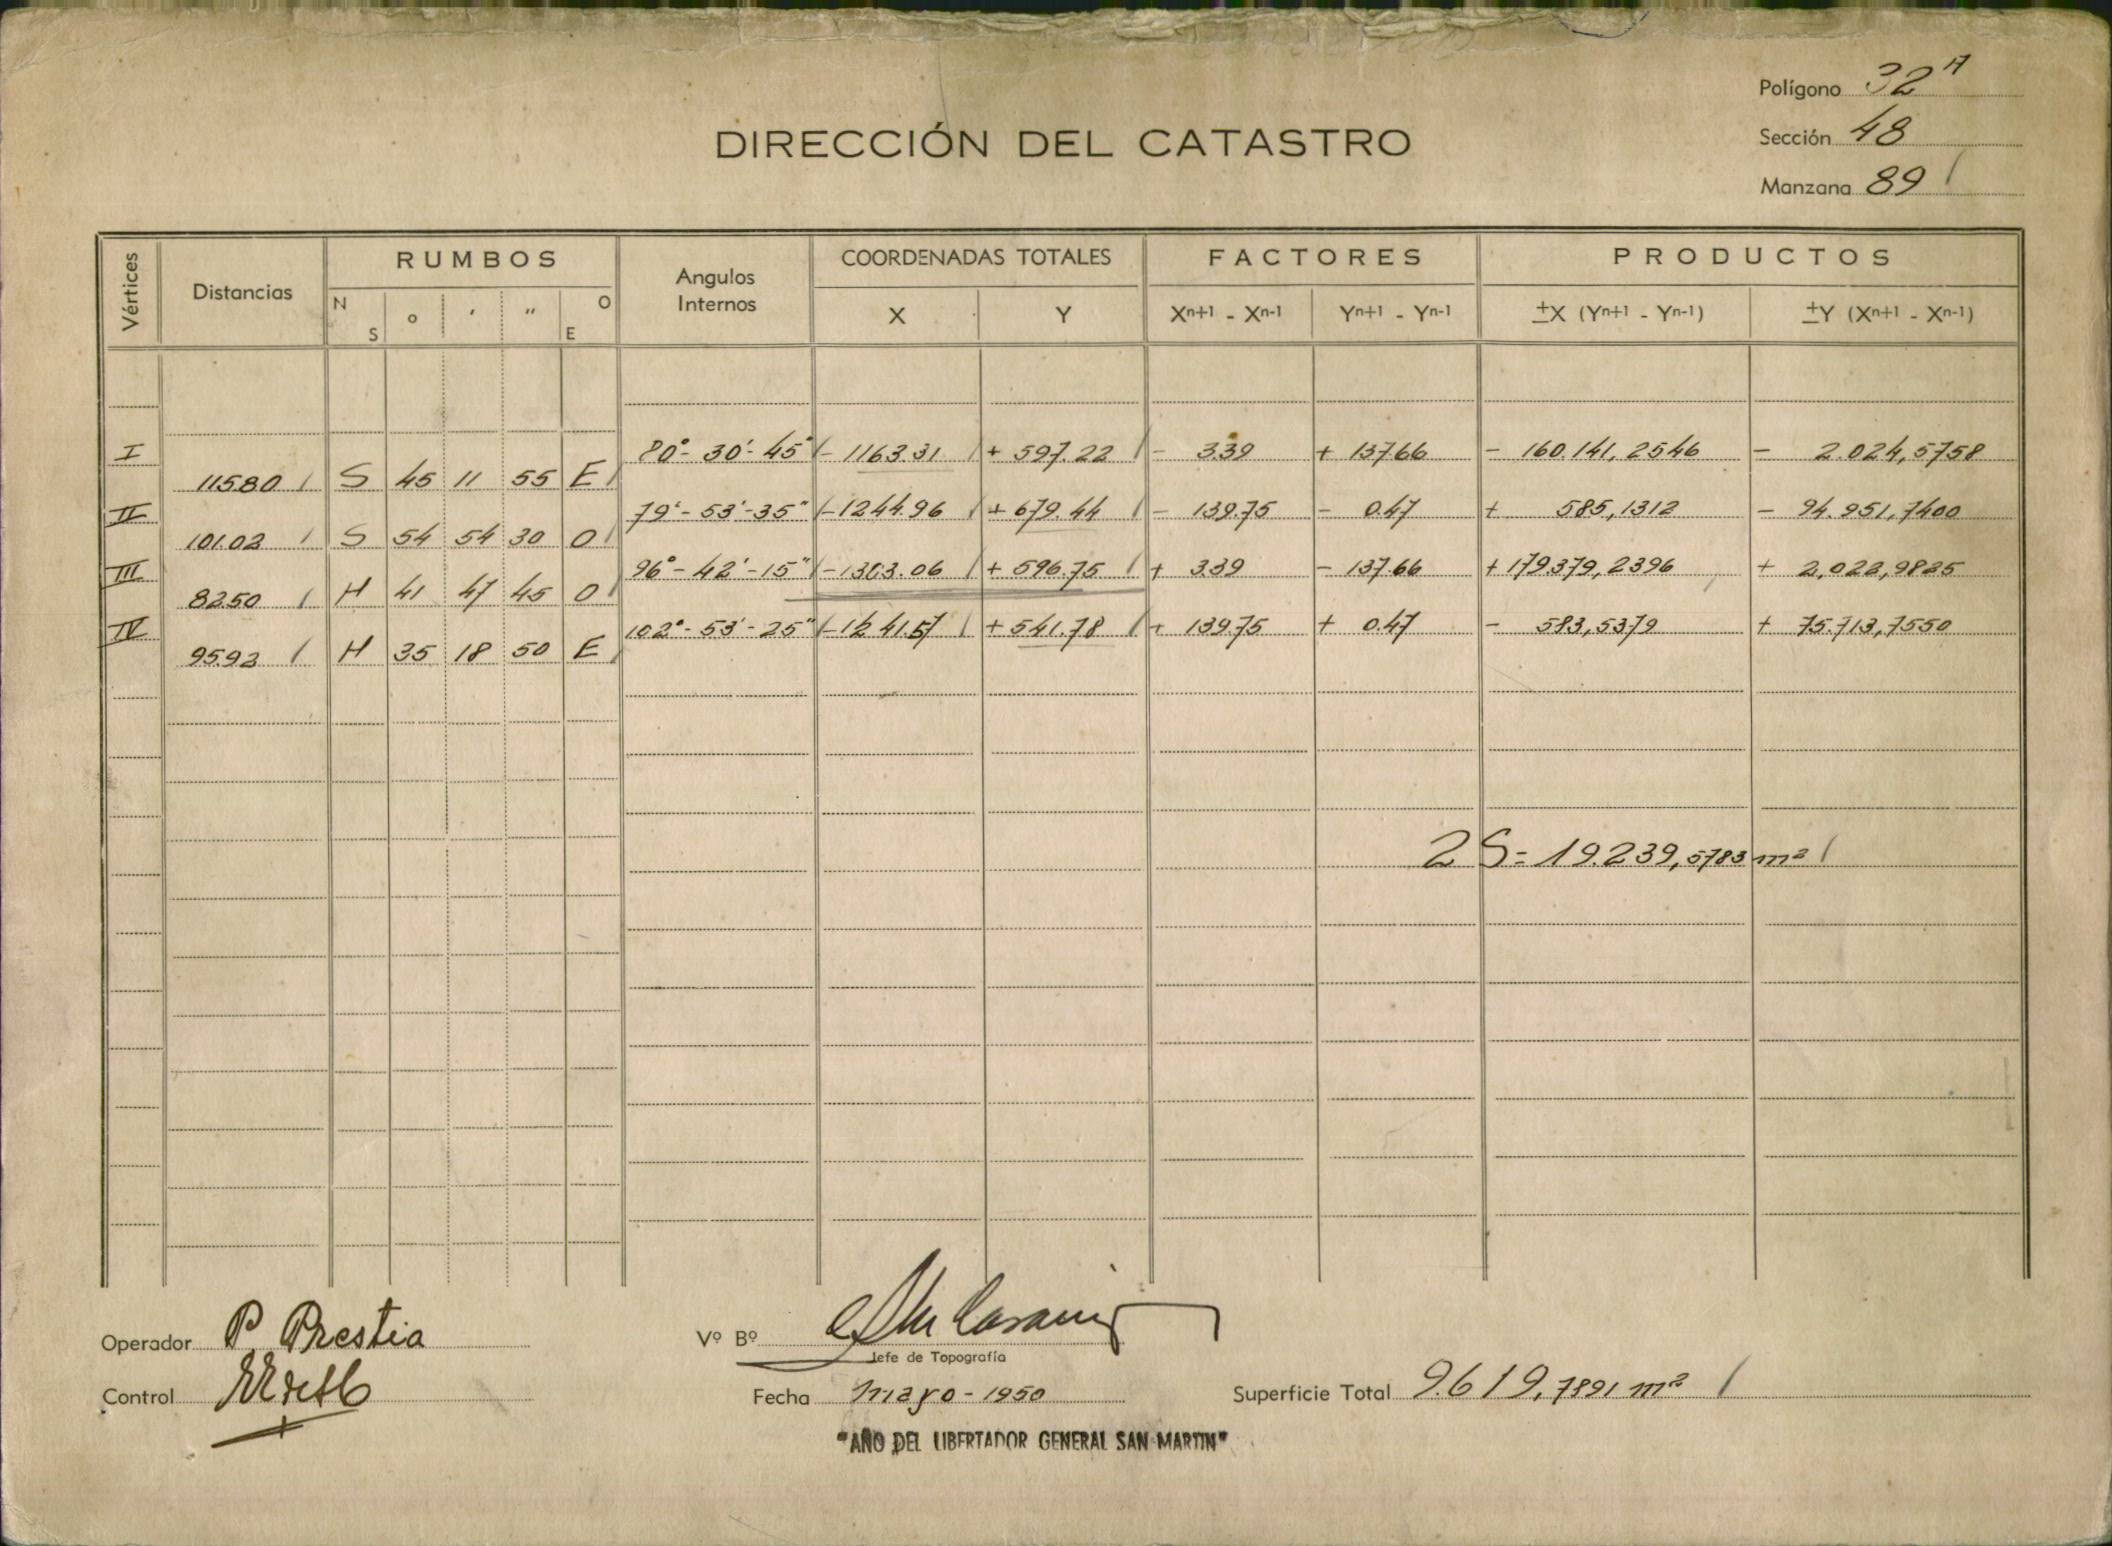 Polígono 32 A
Sección 48
Manzana 89
DIRECCIÓN DEL CATASTRO
Vértices Distancias RUMBOS Angulos Internos COORDENADAS TOTALES FACTORES PRODUCTOS
N S o ' " O E X Y Xn+1 - Xn-1 Yn+1 - Yn-1 ±X (Yn+1 - Yn-1) ±Y (Xn+1 - Xn-1)
I 80° - 30' - 45" - 1163.31 + 597.22 - 3.39 + 137.66 - 160.141,2546 - 2.024,5758
115.80 S 45 11 55 E
II 79° - 53' - 35" - 1244.96 + 679.44 - 139.75 - 0.47 + 585,1312 - 94.951,7400
101.02 S 54 54 30 O
III 96° - 42' - 15" - 1303.06 + 596.75 + 3.39 - 137.66 + 179.379,2396 + 2,022,9825
82.50 N 41 47 45 O
IV 102° - 53' - 25" - 1241.57 + 541.78 + 139.75 + 0.47 - 583,5379 + 75.713,7550
95.92 N 35 18 50 E
2 S = 19.239,5783 m²
Operador P. Prestia
Vº Bº
Jefe de Topografía
Control
Fecha mayo - 1950
Superficie Total 9.619,7891 m²
"AÑO DEL LIBERTADOR GENERAL SAN MARTIN"